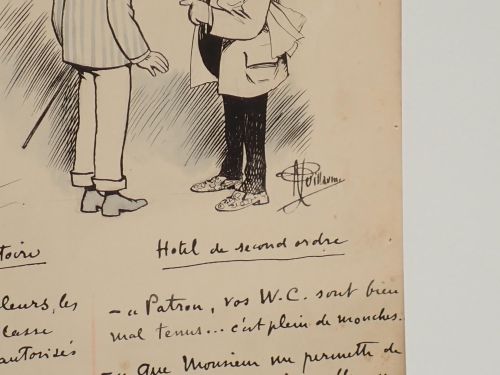 AGuillaume
toire
Hotel de second ordre
leurs, les
classe
autorisés
—« Patron, vos W.C. sont bien
mal tenus... c'est plein de mouches.
— Que Monsieur me permette de